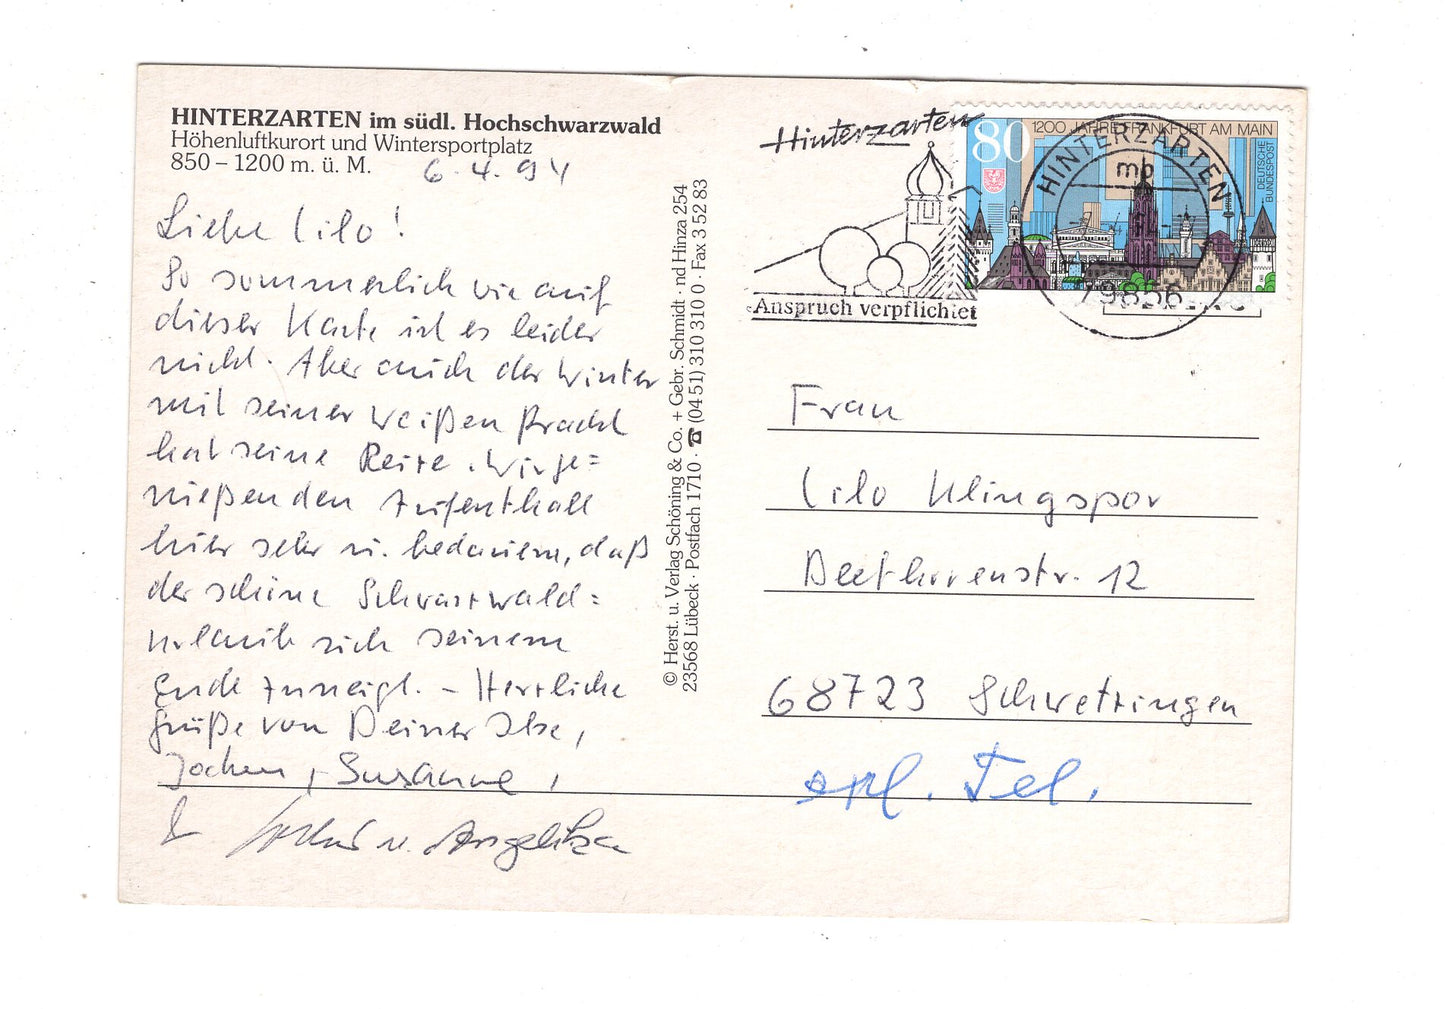 HINTERZARTEN im südl. Hochschwarzwald
Höhenluftkurort und Wintersportplatz
850 – 1200 m. ü. M.
6.4.94
Liebe Lilo!
So sommerlich wie auf
dieser Karte ist es leider
nicht. Aber auch der Winter
mit seiner weißen Pracht
hat seine Reize. Wir ge=
nießen den Aufenthalt
hier sehr u. bedauern, daß
der schöne Schwarzwald=
urlaub sich seinem
Ende zuneigt. – Herzliche
Grüße von Deiner Ilse,
Jochen, Susanne,
u. Angelika
© Herst. u. Verlag Schöning & Co. + Gebr. Schmidt · nd Hinza 254
23568 Lübeck · Postfach 1710 · ☎ (04 51) 310 310 0 · Fax 3 52 83
Hinterzarten
Anspruch verpflichtet
80
1200 JAHRE FRANKFURT AM MAIN
DEUTSCHE
BUNDESPOST
HINTERZARTEN
mb
79856
Frau
Lilo Klingspor
Beethovenstr. 12
68723 Schwetzingen
erl. Tel.